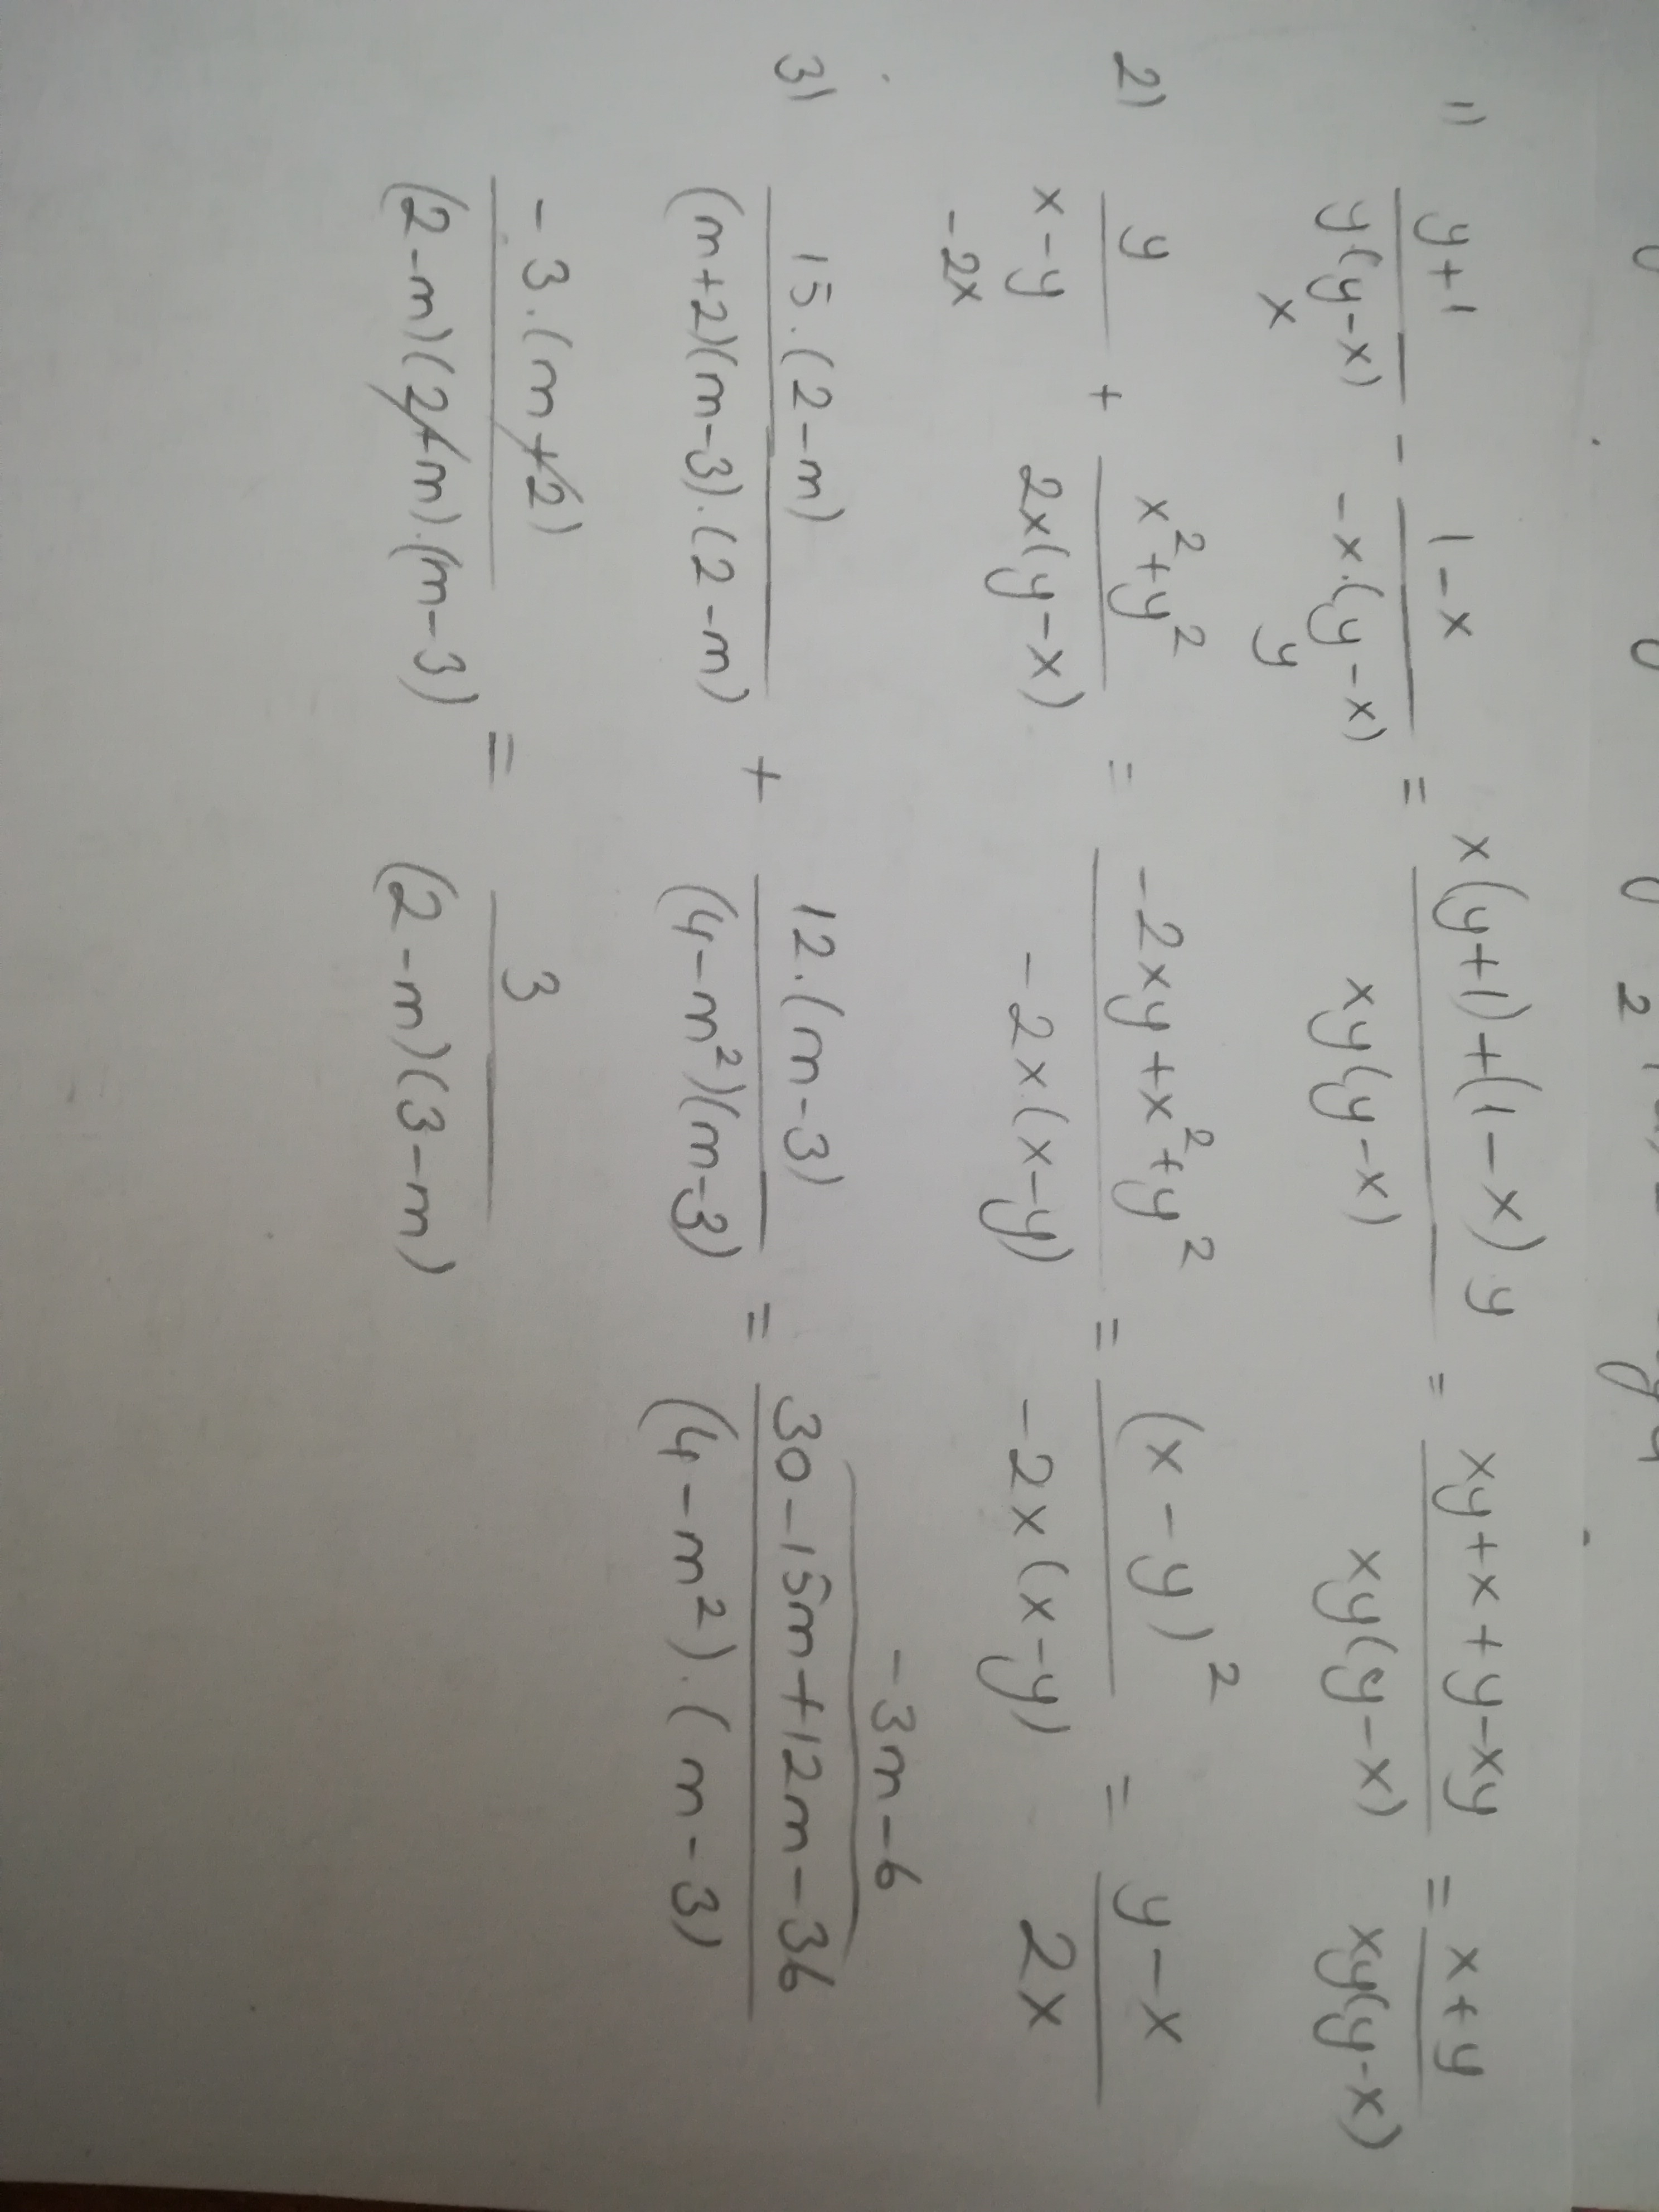 1) y+1/y(y-x) - 1-x/-x.(y-x) = x(y+1)+(1-x)y/xy(y-x) = xy+x+y-xy/xy(y-x) = x+y/xy(y-x)
x y
2) y/x-y + x²+y²/2x(y-x) = -2xy+x²+y²/-2x.(x-y) = (x-y)²/-2x(x-y) = y-x/2x
-2x
-3m-6
3) 15.(2-m)/(m+2)(m-3).(2-m) + 12.(m-3)/(4-m²)(m-3) = 30-15m+12m-36/(4-m²).(m-3)
-3.(m+2)/(2-m)(2+m).(m-3) = 3/(2-m)(3-m)